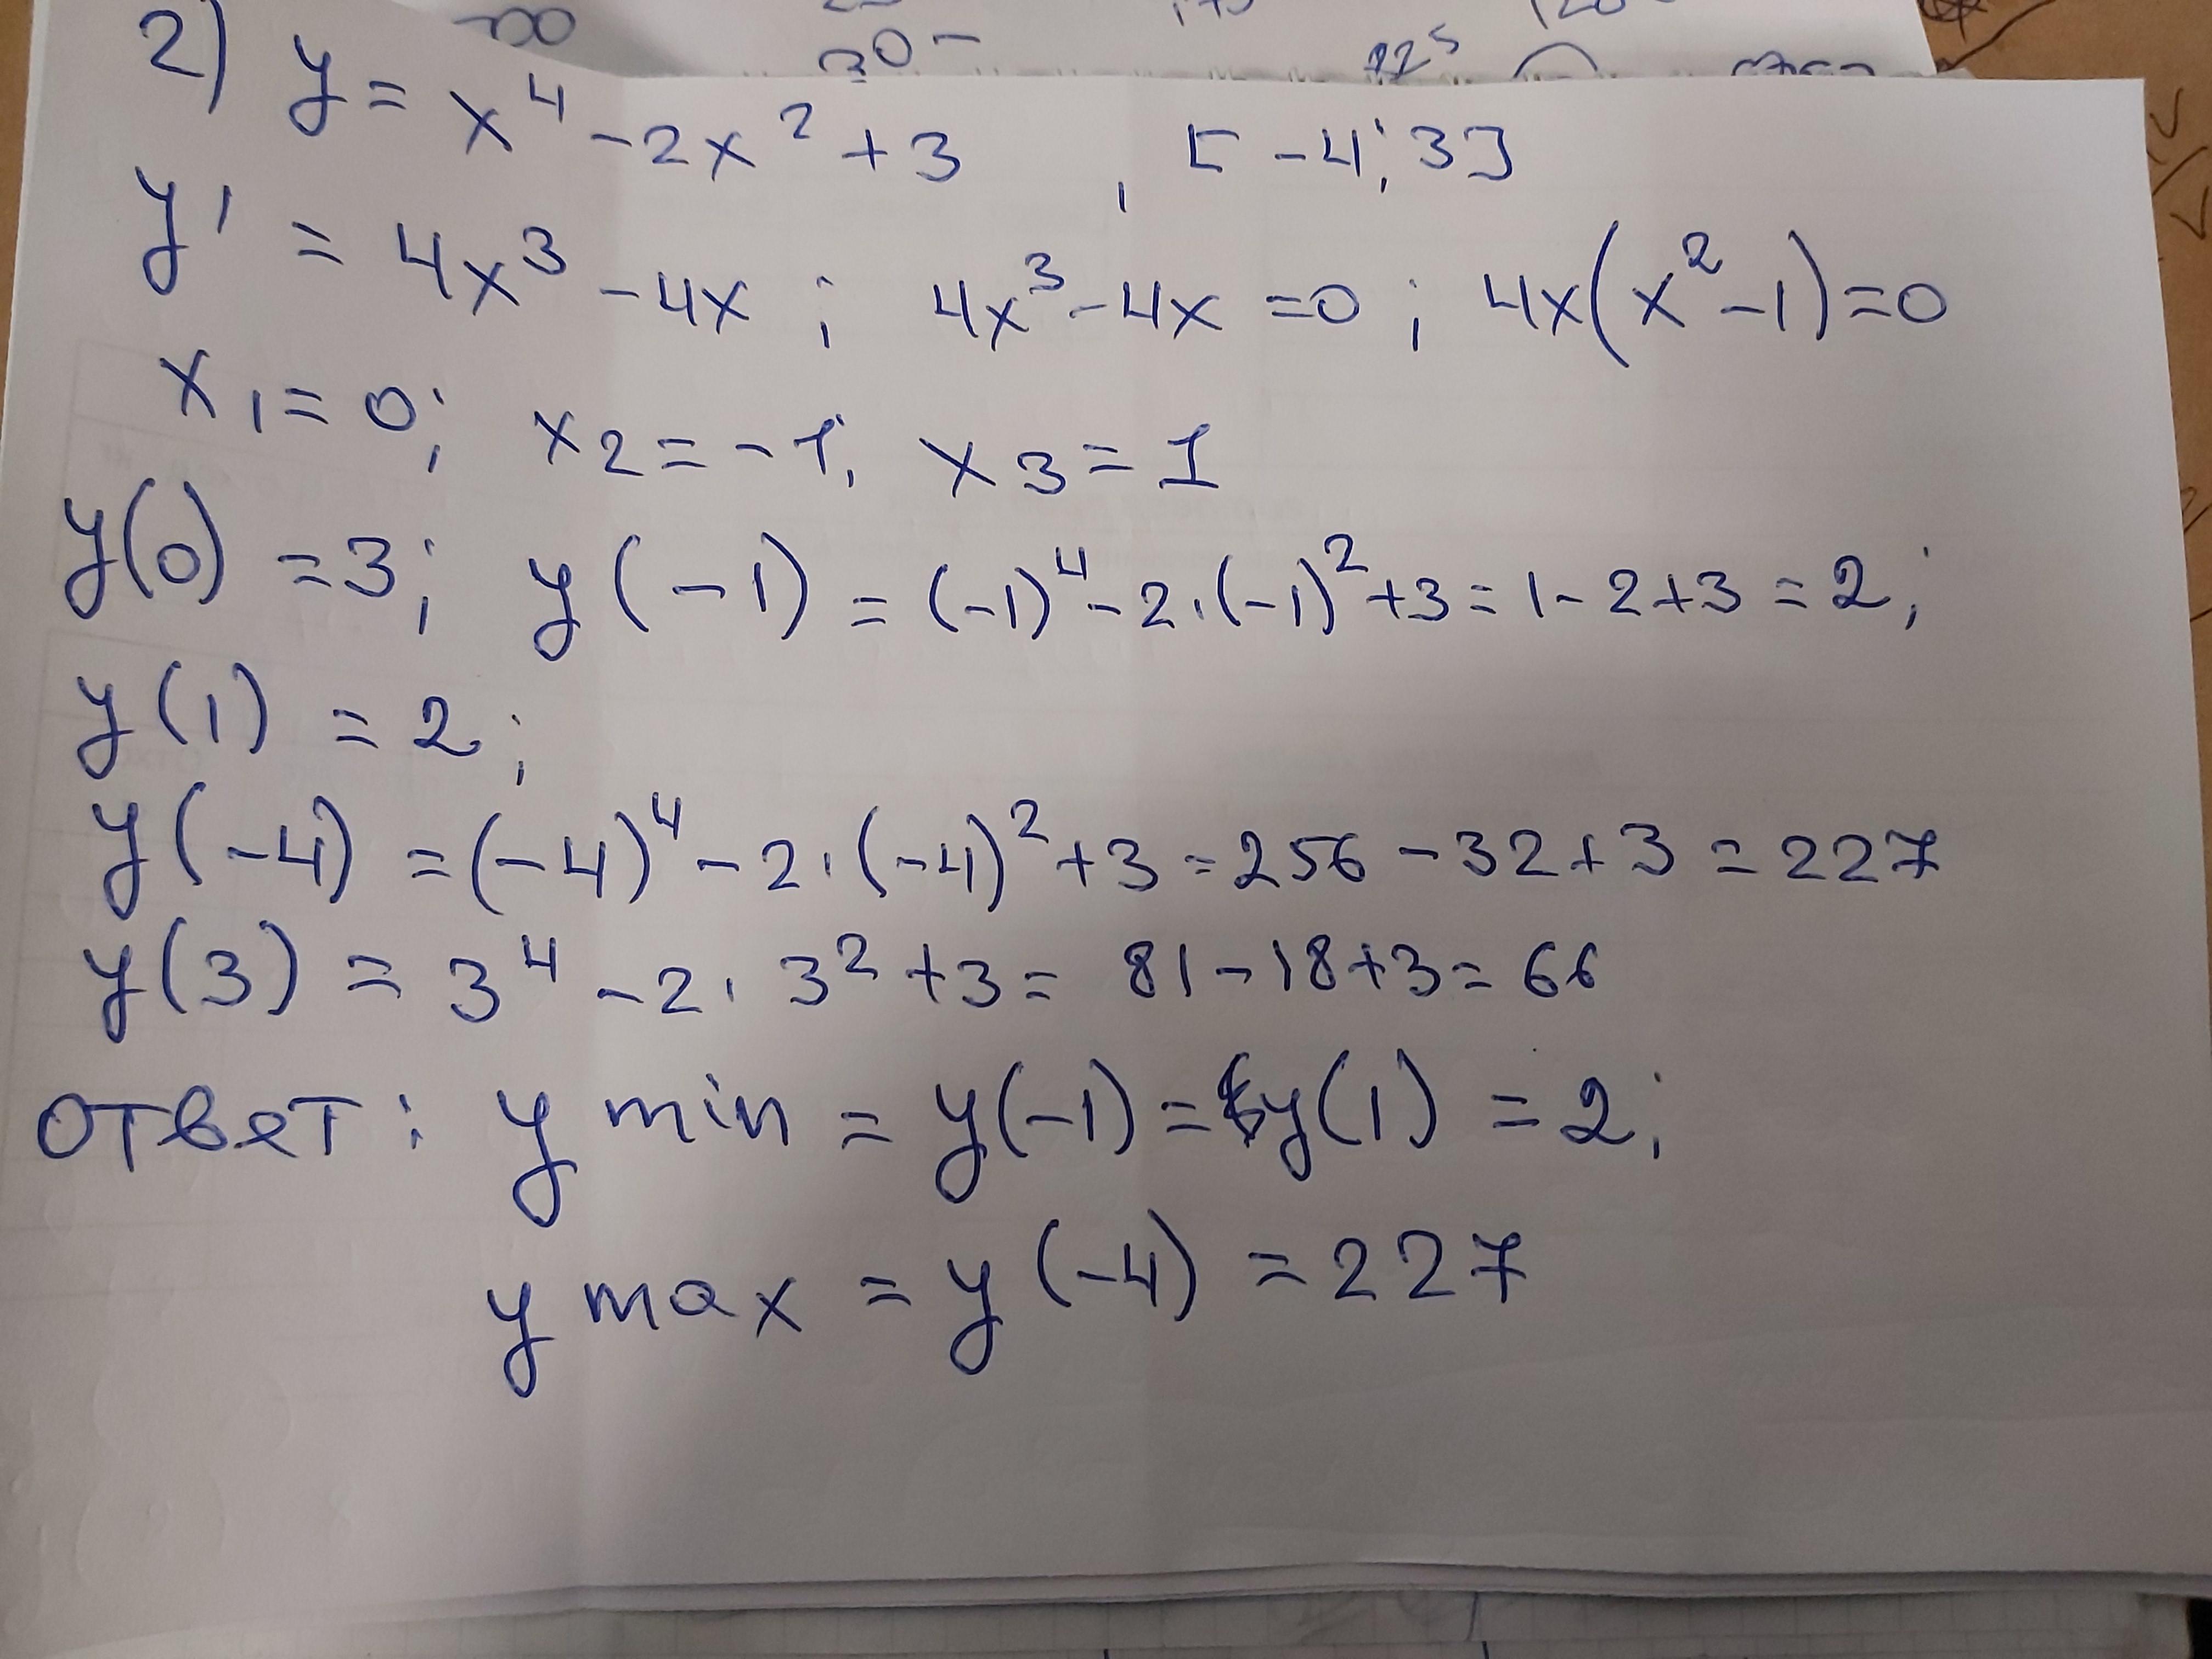 2) y = x⁴ - 2x² + 3 , [-4; 3]
y' = 4x³ - 4x ; 4x³ - 4x = 0 ; 4x(x² - 1) = 0
x₁ = 0; x₂ = -1; x₃ = 1
y(0) = 3; y(-1) = (-1)⁴ - 2·(-1)² + 3 = 1 - 2 + 3 = 2;
y(1) = 2;
y(-4) = (-4)⁴ - 2·(-4)² + 3 = 256 - 32 + 3 = 227
y(3) = 3⁴ - 2·3² + 3 = 81 - 18 + 3 = 66
ответ: y min = y(-1) = y(1) = 2;
y max = y(-4) = 227